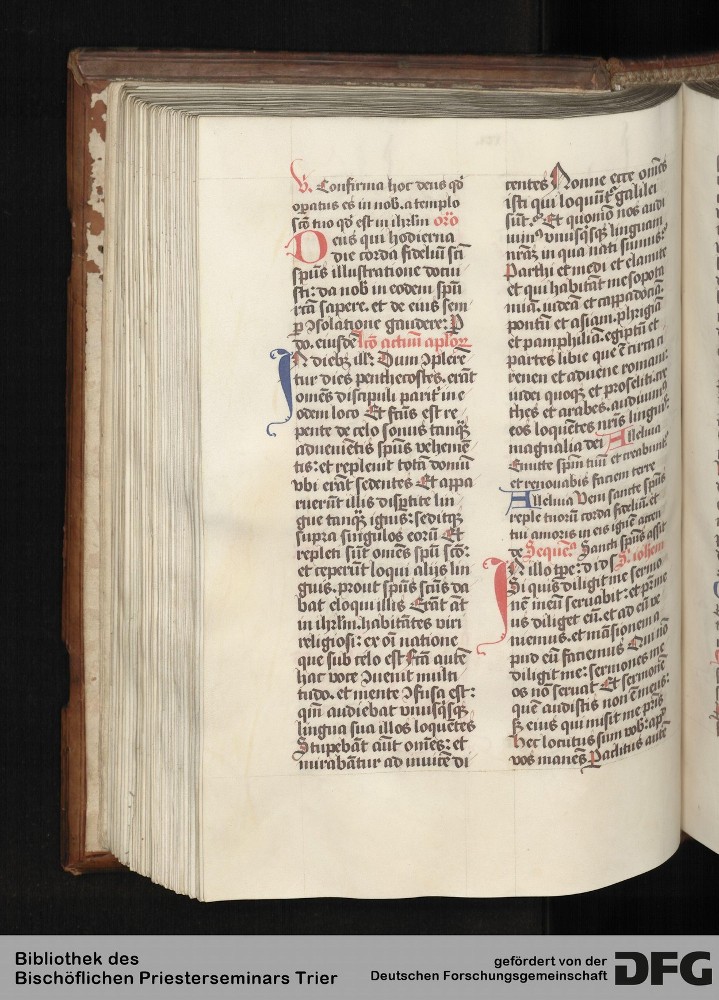 V. Confirma hoc deus qd̄
oꝑatus es in nob. a templo
scō tuo qd̄ est in ihrlm̄ orō
Deus qui hodierna
die corda fidelium sc̄i
spūs illustratione docui
sti: da nob in eodem spū
rc̄ā sapere. et de eius sem
ꝑ ↄsolatione gaudere: P
do. eiusdē lc̄o actuū aplōꝝ
In diebꝫ ill: Dum ↄplerē
tur dies penthecostes. erāt
om̄es discipuli parit̄ in e
odem loco Et fc̄us est re
pente de celo sonus tanqꝫ
aduenientis spūs vehemē
tis: et repleuit totā domū
vbi erāt sedentes Et appa
ruerūt illis disꝑtite lin
gue tanqꝫ ignis: seditqꝫ
supra singulos eorū Et
repleti sūt om̄es spū scō:
et ceperūt loqui alijs lin
guis. prout spūs sc̄us da
bat eloqui illis Erāt āt
in ihrlm̄. habitātes viri
religiosi: ex oī natione
que sub celo est Fc̄ā autē
hac voce ↄuenit multi
tudo. et mente ↄfusa est:
qm̄ audiebat vnusqͥsqꝫ
lingua sua illos loquētes
Stupebāt aūt om̄es: et
mirabātur ad inuicē di
centes Nonne ecce om̄es
isti qui loquūtᷣ galilei
sūt. Et quomō nos audi
uimꝰ vnusqͥsqꝫ linguam
nr̄am in qua nati sumus:
Parthi et medi et elamite
et qui habitāt mesopota
miā. iudeā et cappadociā.
pontū et asiam. phrigiā
et pamphiliā. egiptū et
partes libie que ē circa ci
renen et aduene romani:
iudei quoqꝫ et proseliti. cre
thes et arabes. audiuimꝰ
eos loquētes nr̄is linguis
magnalia dei Alleluia
Emitte spm̄ tuū et creabunt̄
et renouabis faciem terre
Alleluia Veni sancte spūs
reple tuorū corda fideliū. et
tui amoris in eis ignē accen
de Sequēᵃ Sancti spūs assit
In illo tꝑe: d i d s S. iohem
Si quis diligit me sermo
nē meū seruabit: et pr̄ me
us diliget eū. et ad eū ve
niemus. et māsionem a
pud eū faciemus Qui nō
diligit me: sermones me
os nō seruat Et sermonē
quē audistis non ē meus:
sꝫ eius qui misit me pr̄is
Hec locutus sum vob: apᵈ
vos manēs Paclitus autē
Bibliothek des
Bischöflichen Priesterseminars Trier
gefördert von der
Deutschen Forschungsgemeinschaft
DFG